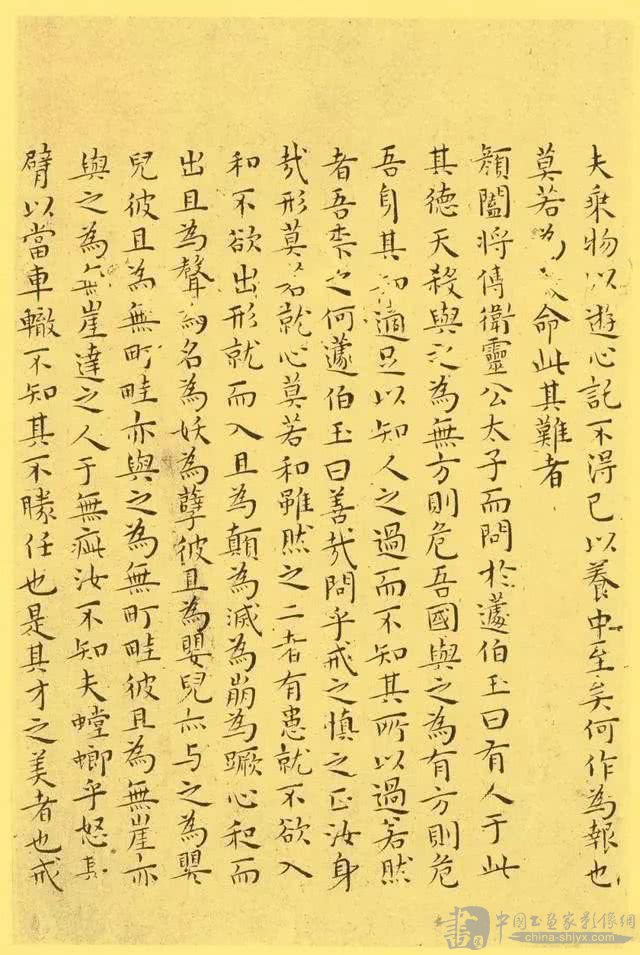 夫乘物以遊心託不得已以養中至矣何作為報也
莫若為命此其難者
顏闔將傅衛靈公太子而問於蘧伯玉曰有人于此
其德天殺與之為無方則危吾國與之為有方則危
吾身其知適足以知人之過而不知其所以過若然
者吾柰之何蘧伯玉曰善哉問乎戒之慎之正汝身
哉形莫若就心莫若和雖然之二者有患就不欲入
和不欲出形就而入且為顛為滅為崩為蹶心和而
出且為聲為名為妖為孽彼且為嬰兒亦与之為嬰
兒彼且為無町畦亦與之為無町畦彼且為無崖亦
與之為無崖達之人于無疵汝不知夫螳螂乎怒其
臂以當車轍不知其不勝任也是其才之美者也戒
書画
中國书画家影像網
china-shjyx.com